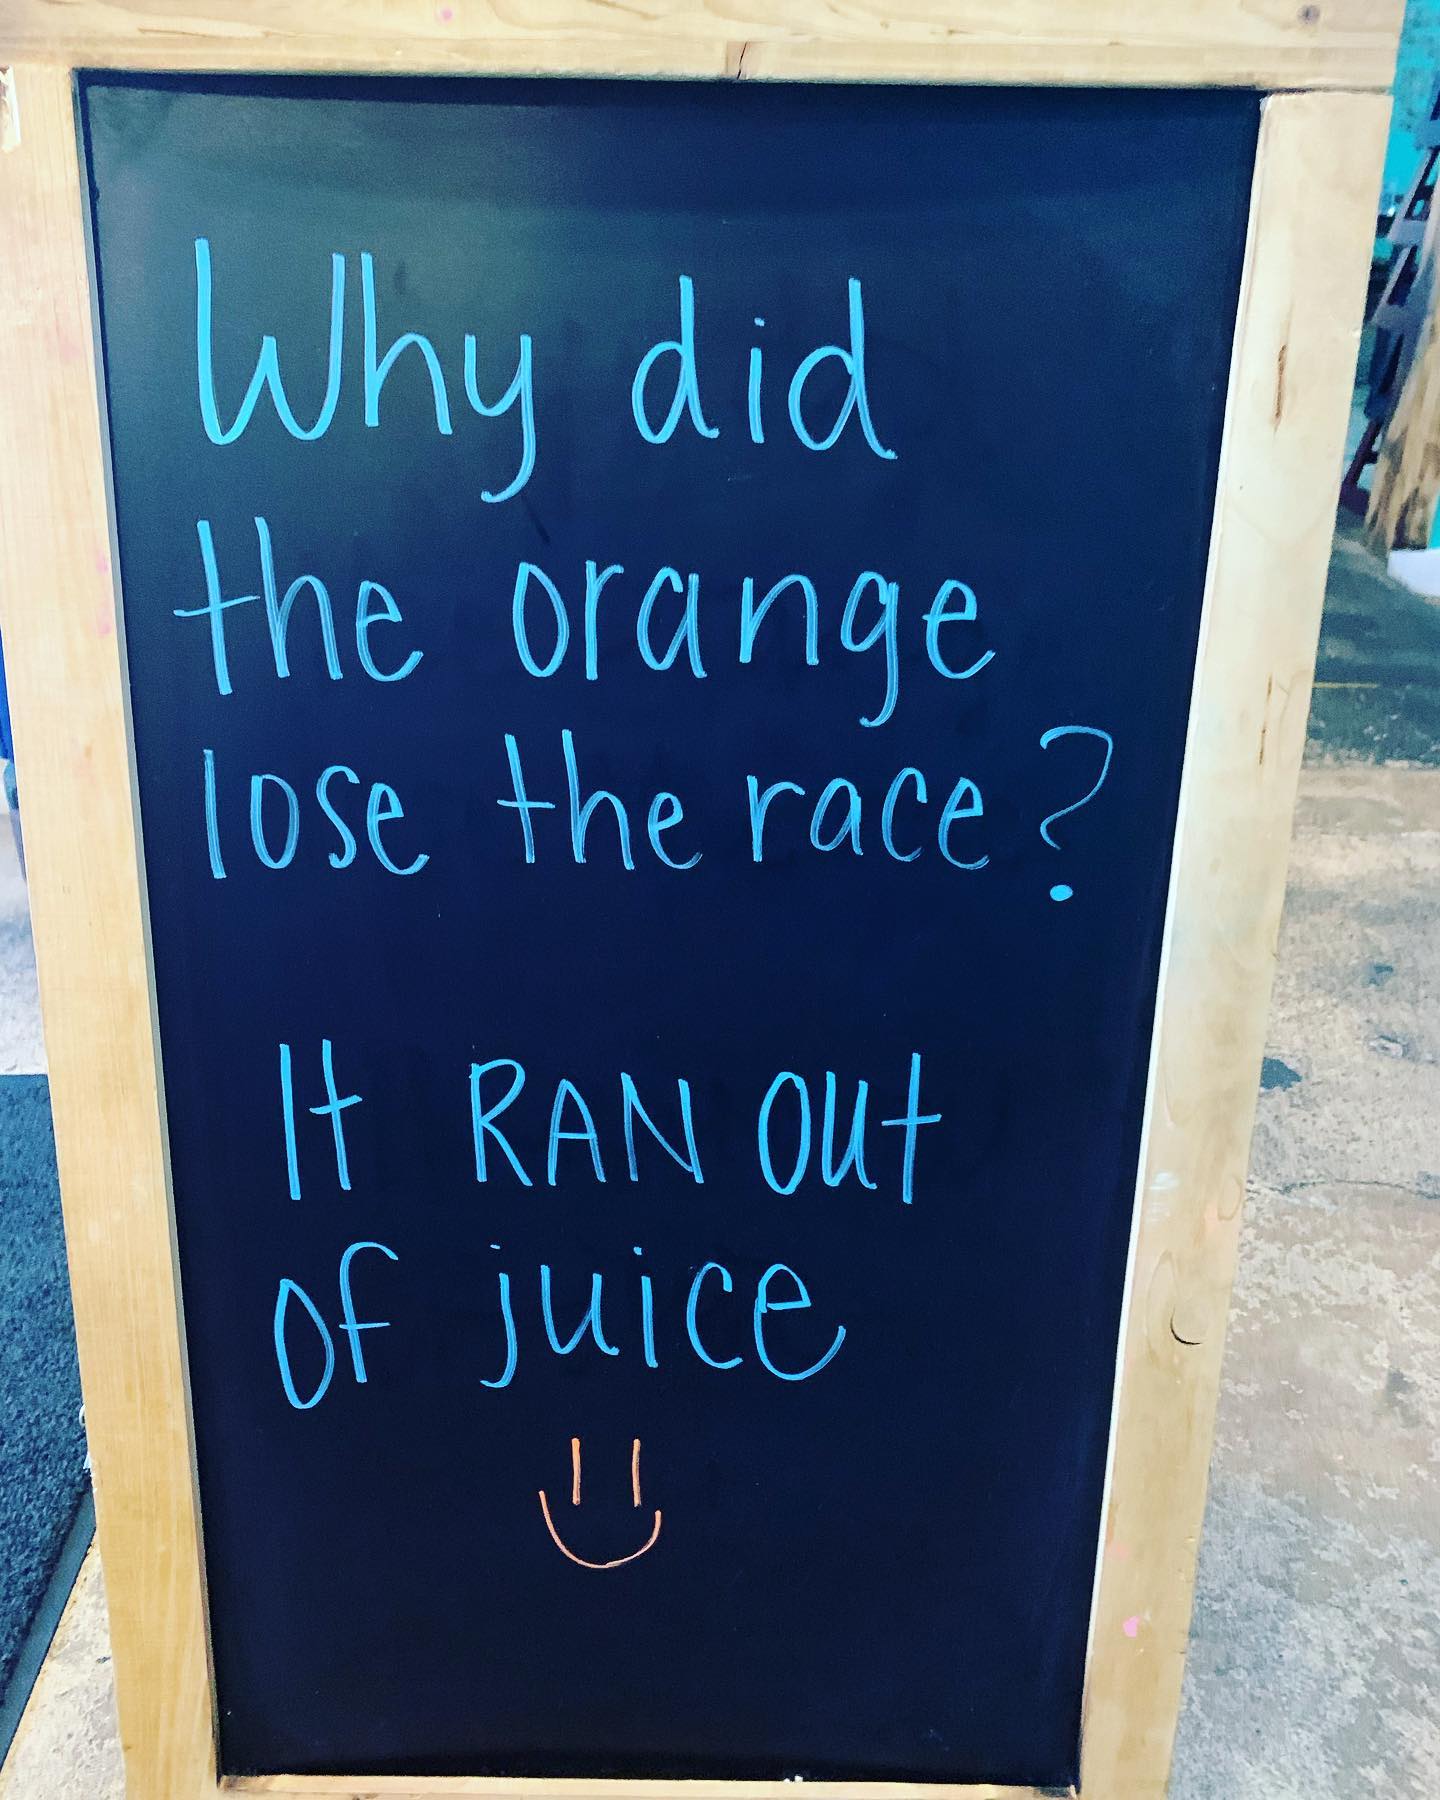 Why did
the orange
lose the race?
It RAN out
of juice